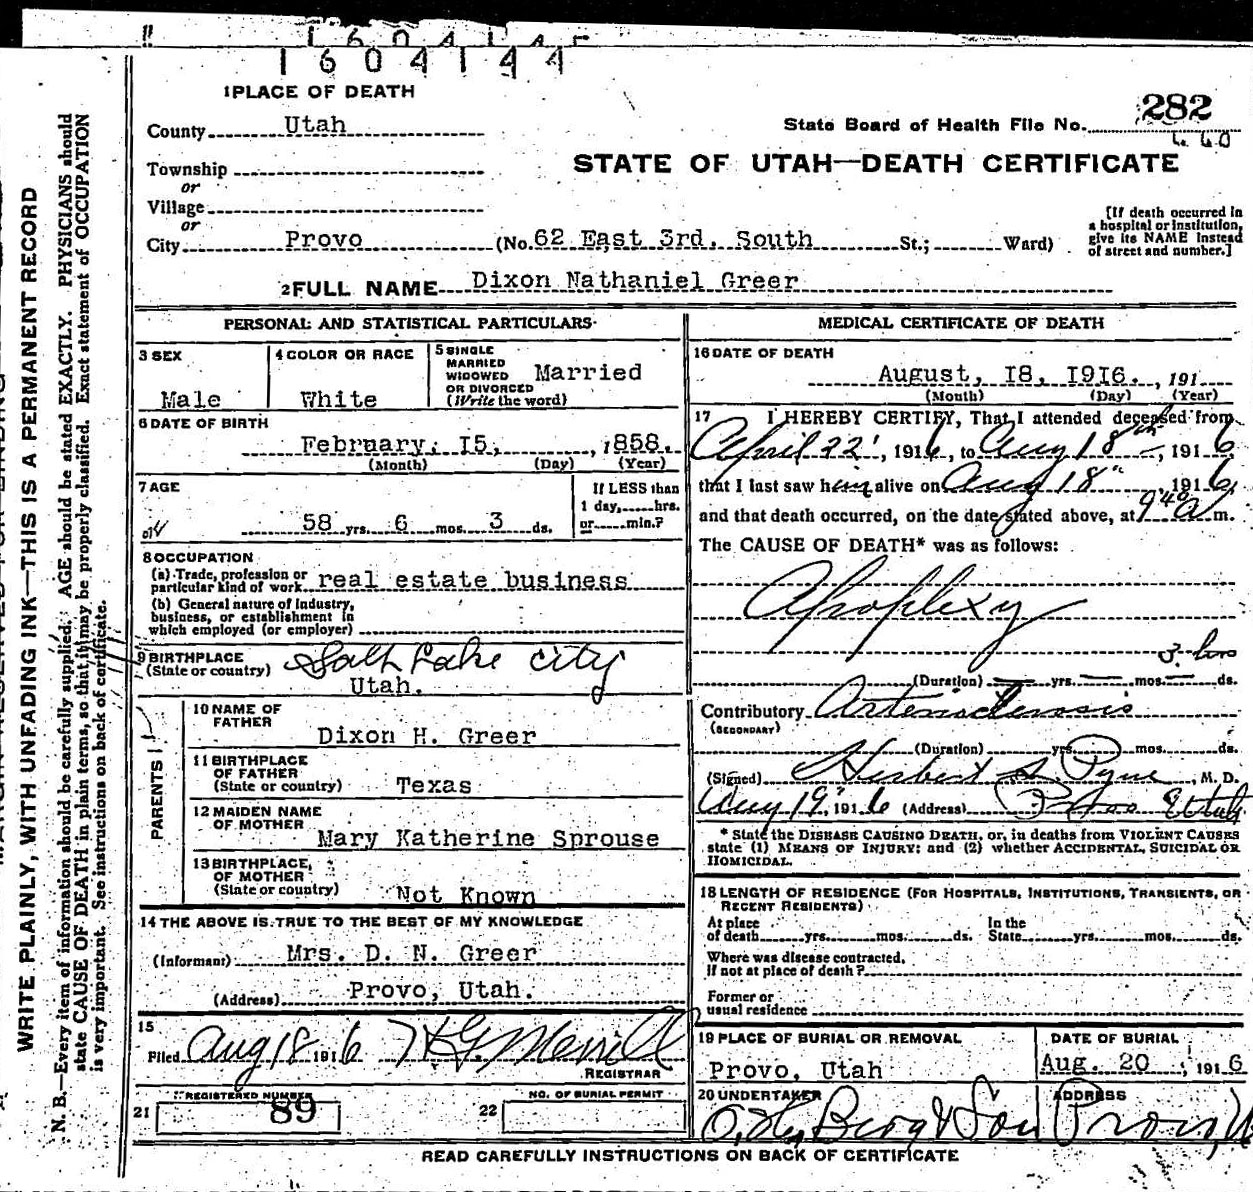 1604144
1 PLACE OF DEATH
County Utah
State Board of Health File No. 282
STATE OF UTAH—DEATH CERTIFICATE
Township
or
Village
or
City Provo (No. 62 East 3rd. South St.; Ward)
[If death occurred in
a hospital or institution,
give its NAME instead
of street and number.]
2 FULL NAME Dixon Nathaniel Greer
PERSONAL AND STATISTICAL PARTICULARS
3 SEX
Male
4 COLOR OR RACE
White
5 SINGLE
MARRIED
WIDOWED
OR DIVORCED
(Write the word)
Married
6 DATE OF BIRTH
February, I5, , 1858.
(Month) (Day) (Year)
7 AGE
58 yrs. 6 mos. 3 ds.
If LESS than
1 day, hrs.
or min.?
8 OCCUPATION
(a) Trade, profession or
particular kind of work real estate business
(b) General nature of Industry,
business, or establishment in
which employed (or employer)
9 BIRTHPLACE
(State or country) Salt Lake City
Utah.
PARENTS
10 NAME OF
FATHER
Dixon H. Greer
11 BIRTHPLACE
OF FATHER
(State or country) Texas
12 MAIDEN NAME
OF MOTHER
Mary Katherine Sprouse
13 BIRTHPLACE,
OF MOTHER
(State or country) Not Known
14 THE ABOVE IS TRUE TO THE BEST OF MY KNOWLEDGE
(Informant) Mrs. D. N. Greer
(Address) Provo, Utah.
15
Filed Aug 18 1916 Merrill
REGISTRAR
21 REGISTERED NUMBER
89
22 NO. OF BURIAL PERMIT
MEDICAL CERTIFICATE OF DEATH
16 DATE OF DEATH
August, I8, I9I6. , 191
(Month) (Day) (Year)
17 I HEREBY CERTIFY, That I attended deceased from
April 22, 1916, to Aug 18th, 1916
that I last saw him alive on Aug 18", 1916,
and that death occurred, on the date stated above, at 9 40 A m.
The CAUSE OF DEATH* was as follows:
Apoplexy
3 hrs
(Duration) yrs. mos. ds.
Contributory Arteriosclerosis
(SECONDARY)
(Duration) yrs. mos. ds.
(Signed) Herbert S. Pyne, M. D.
Aug 19" 1916 (Address) Provo Utah
* State the DISEASE CAUSING DEATH, or, in deaths from VIOLENT CAUSES
state (1) MEANS OF INJURY; and (2) whether ACCIDENTAL, SUICIDAL OR
HOMICIDAL.
18 LENGTH OF RESIDENCE (FOR HOSPITALS, INSTITUTIONS, TRANSIENTS, OR
RECENT RESIDENTS)
At place In the
of death yrs. mos. ds. State yrs. mos. ds.
Where was disease contracted,
If not at place of death?
Former or
usual residence
19 PLACE OF BURIAL OR REMOVAL
Provo, Utah
DATE OF BURIAL
Aug. 20 , 1916
20 UNDERTAKER
Berg & Son
ADDRESS
Provo, U
READ CAREFULLY INSTRUCTIONS ON BACK OF CERTIFICATE
WRITE PLAINLY, WITH UNFADING INK—THIS IS A PERMANENT RECORD
N. B.—Every item of information should be carefully supplied. AGE should be stated EXACTLY. PHYSICIANS should
state CAUSE OF DEATH in plain terms, so that it may be properly classified. Exact statement of OCCUPATION
is very important. See instructions on back of certificate.